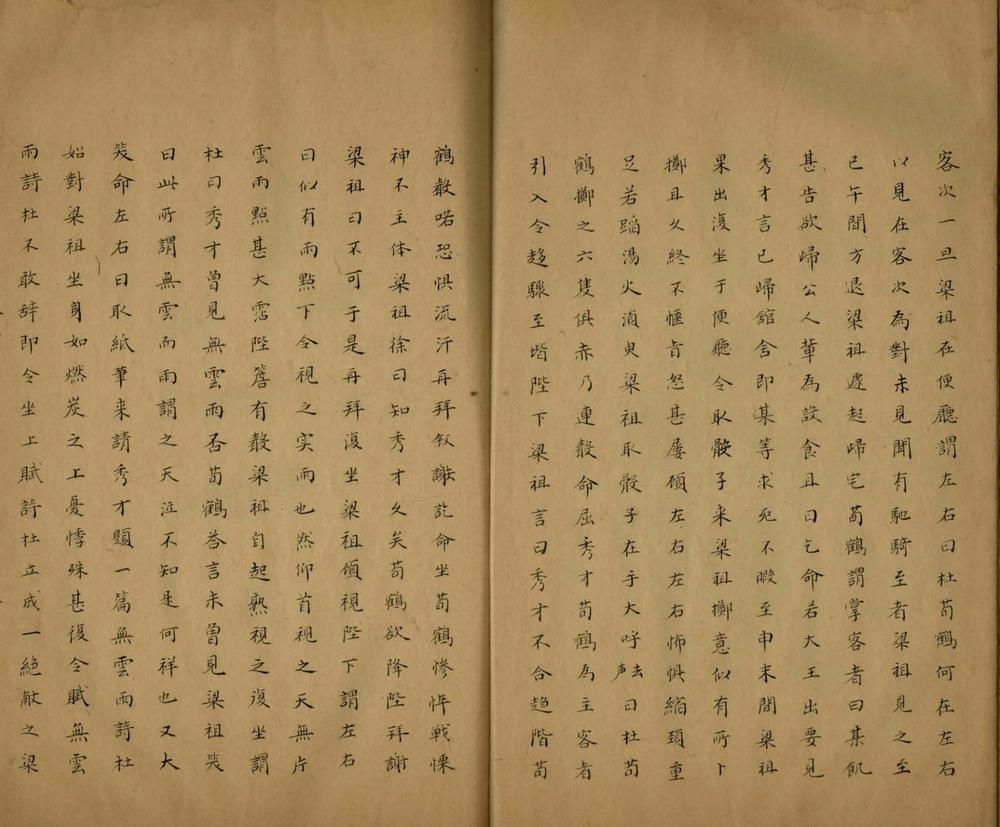 客次一旦梁祖在便廳謂左右曰杜荀鶴何在左右
以見在客次為對未見聞有馳騎至者梁祖見之至
已午間方退梁祖遽起歸宅荀鶴謂掌客者曰某飢
甚告欲歸公人輩為設食且曰乞命若大王出要見
秀才言已歸舘舍即某等求死不暇至申未間梁祖
果出復坐于便廳令取骰子来梁祖擲意似有所卜
擲且久終不愜旨怒甚屢顧左右左右怖惧縮頚重
足若蹈湯火湏臾梁祖取骰子在手大呼去声曰杜荀
鶴擲之六隻俱赤乃連聲命屈秀才荀鶴為主客者
引入令趋驟至堦陛下梁祖言曰秀才不合趋階荀
鶴聲喏恐惧流汗再拜叙謝訖命坐荀鶴惨悴戰慄
神不主体梁祖徐曰知秀才久矣荀鶴欲降陛拜謝
梁祖曰不可于是再拜復坐梁祖顧視陛下謂左右
曰似有雨點下令視之实雨也然仰首視之天無片
雲雨點甚大霑陛簷有聲梁祖自起熟視之復坐謂
杜曰秀才曾見無雲雨否荀鶴荅言未曾見梁祖笑
曰此所謂無雲而雨謂之天泣不知是何祥也又大
笑命左右曰取紙筆来請秀才題一篇無雲雨詩杜
始對梁祖坐身如燃炭之上憂悸殊甚復令賦無雲
雨詩杜不敢辞即令坐上賦詩杜立成一絕献之梁